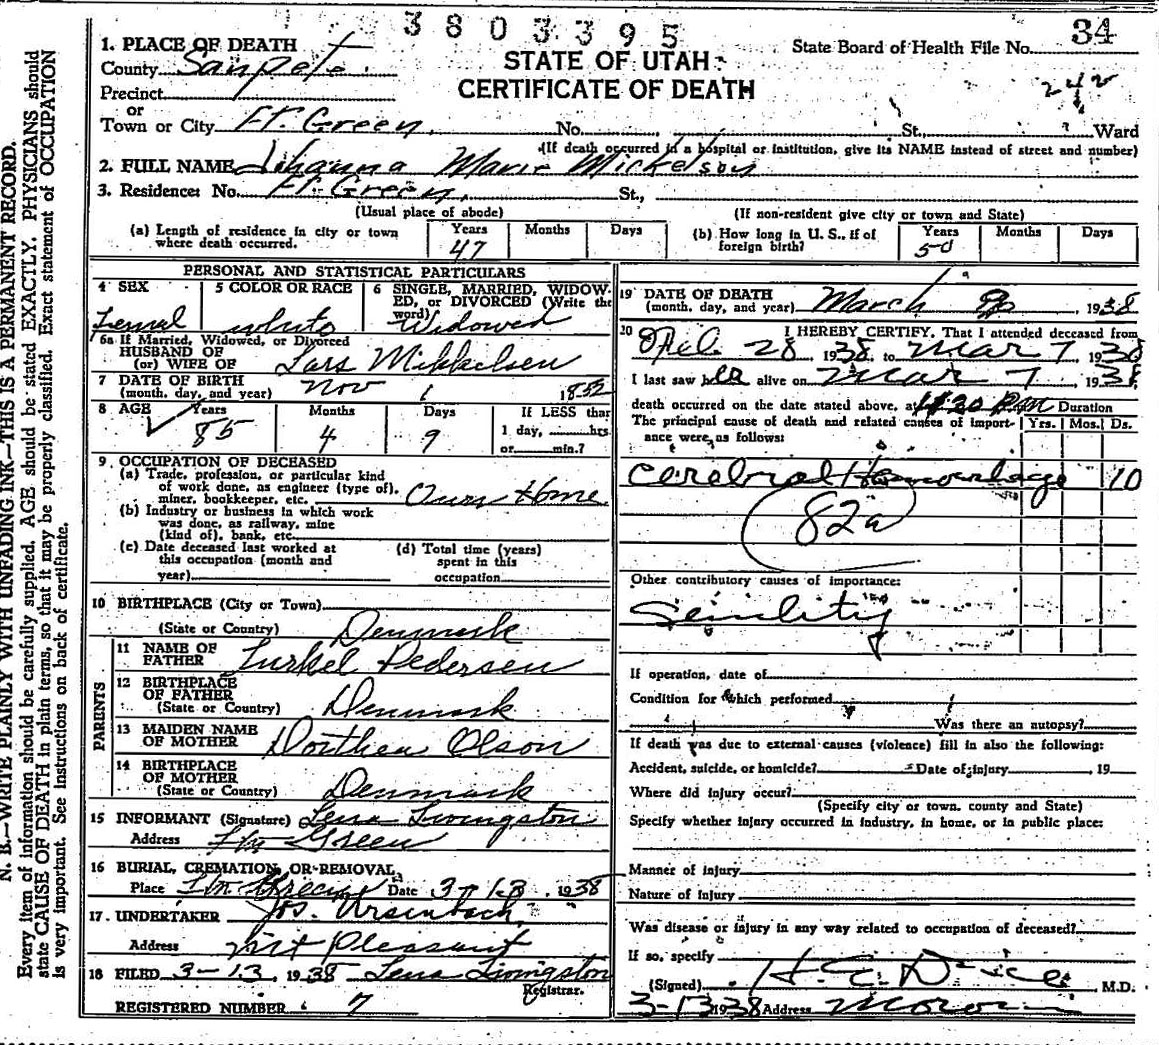 3803395
34
STATE OF UTAH
CERTIFICATE OF DEATH
State Board of Health File No.
242
1. PLACE OF DEATH
County Sanpete.
Precinct
or
Town or City Ft. Green, No. St., Ward
(If death occurred in a hospital or institution, give its NAME instead of street and number)
2. FULL NAME Johanna Marie Mickelson
3. Residence: No. Ft. Green, St.,
(Usual place of abode)
(If non-resident give city or town and State)
(a) Length of residence in city or town where death occurred. Years 47 Months Days
(b) How long in U. S., if of foreign birth? Years 50 Months Days
PERSONAL AND STATISTICAL PARTICULARS
4 SEX Femal
5 COLOR OR RACE white
6 SINGLE, MARRIED, WIDOWED, or DIVORCED (Write the word) Widowed
6a If Married, Widowed, or Divorced
HUSBAND OF
(or) WIFE OF Lars Mikkelsen
7 DATE OF BIRTH
(month, day, and year) Nov 1 1852
8 AGE Years 85 Months 4 Days 9
If LESS than 1 day, hrs. or min.?
9. OCCUPATION OF DECEASED
(a) Trade, profession, or particular kind
of work done, as engineer (type of).
miner, bookkeeper, etc. Own Home
(b) Industry or business in which work
was done, as railway, mine
(kind of), bank, etc.
(c) Date deceased last worked at
this occupation (month and
year)
(d) Total time (years)
spent in this
occupation
10 BIRTHPLACE (City or Town)
(State or Country) Denmark
PARENTS
11 NAME OF
FATHER Turkel Pedersen
12 BIRTHPLACE
OF FATHER
(State or Country) Denmark
13 MAIDEN NAME
OF MOTHER Dorthea Olson
14 BIRTHPLACE
OF MOTHER
(State or Country) Denmark
15 INFORMANT (Signature) Lena Livingston
Address Ftn Green
16 BURIAL, CREMATION, OR REMOVAL,
Place Ftn Green Date 3-13, 1938
17. UNDERTAKER Jos. Ursenbach
Address Mt Pleasant
18 FILED 3-13, 1938 Lena Livingston
Registrar.
REGISTERED NUMBER 7
19 DATE OF DEATH
(month, day, and year) March 1938
20 I HEREBY CERTIFY, That I attended deceased from
Feb. 28 1938, to Mar 7, 1938
I last saw her alive on Mar 7, 1938,
death occurred on the date stated above, at 11:30 P.m
Duration
The principal cause of death and related causes of importance were, as follows: Yrs. Mos. Ds.
Cerebral Hemorrhage 10
82a
Other contributory causes of importance:
Senility
If operation, date of
Condition for which performed
Was there an autopsy?
If death was due to external causes (violence) fill in also the following:
Accident, suicide, or homicide? Date of injury 19
Where did injury occur?
(Specify city or town, county and State)
Specify whether injury occurred in industry, in home, or in public place:
Manner of injury
Nature of injury
Was disease or injury in any way related to occupation of deceased?
If so, specify
(Signed) M.D.
3-13 1938 Address Moroni
N. B.—WRITE PLAINLY WITH UNFADING INK—THIS IS A PERMANENT RECORD.
Every item of information should be carefully supplied. AGE should be stated EXACTLY. PHYSICIANS should
state CAUSE OF DEATH in plain terms, so that it may be properly classified. Exact statement of OCCUPATION
is very important. See instructions on back of certificate.